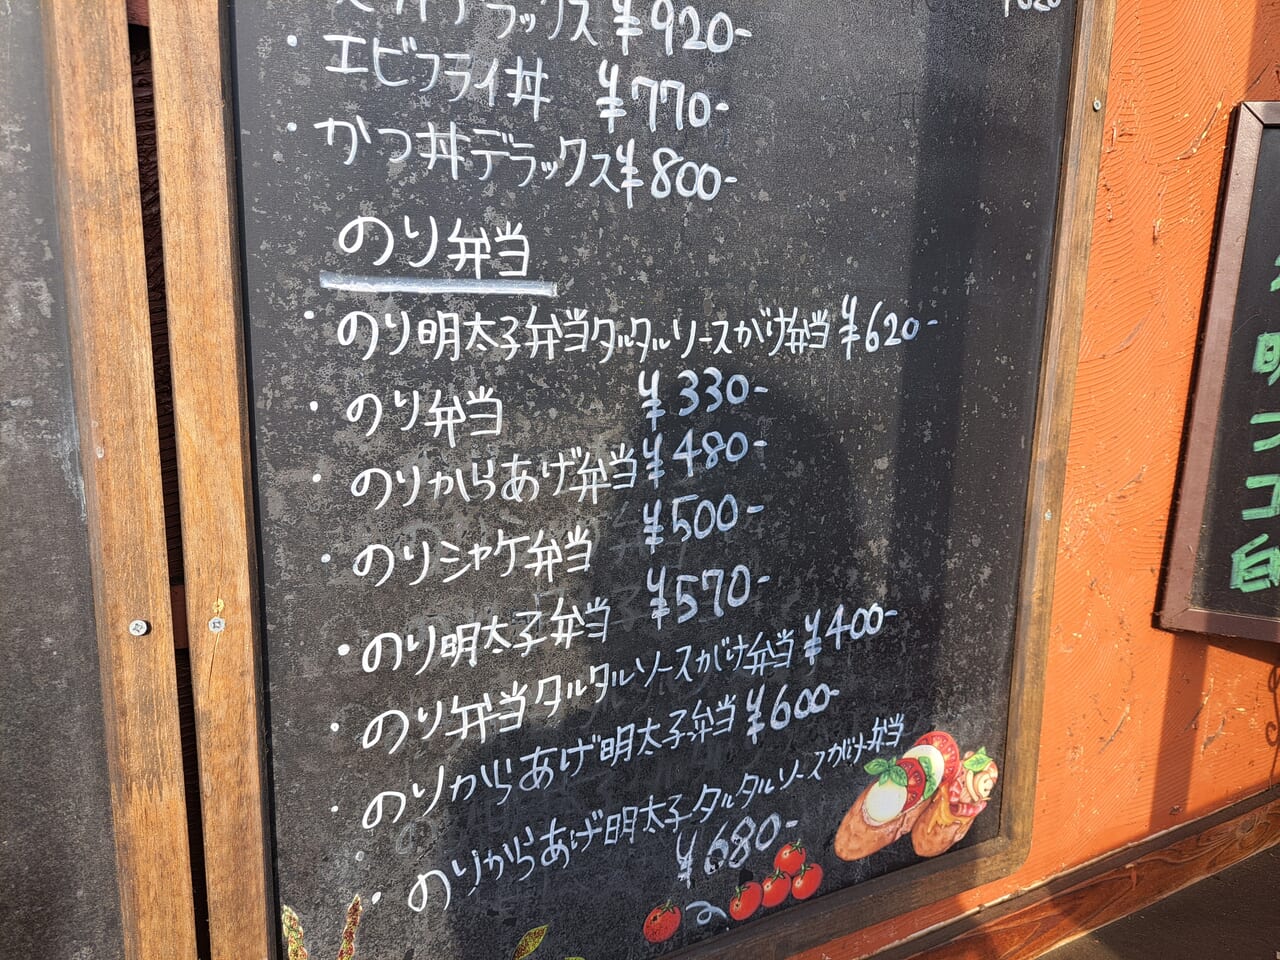 デラックス ¥920-
・エビフライ丼 ¥770-
・かつ丼デラックス ¥800-
のり弁当
・のり明太子弁当タルタルソースがけ弁当 ¥620-
・のり弁当 ¥330-
・のりからあげ弁当 ¥480-
・のりシャケ弁当 ¥500-
・のり明太子弁当 ¥570-
・のり弁当タルタルソースがけ弁当 ¥400-
・のりからあげ明太子弁当 ¥600-
・のりからあげ明太子タルタルソースがけ弁当
¥680-